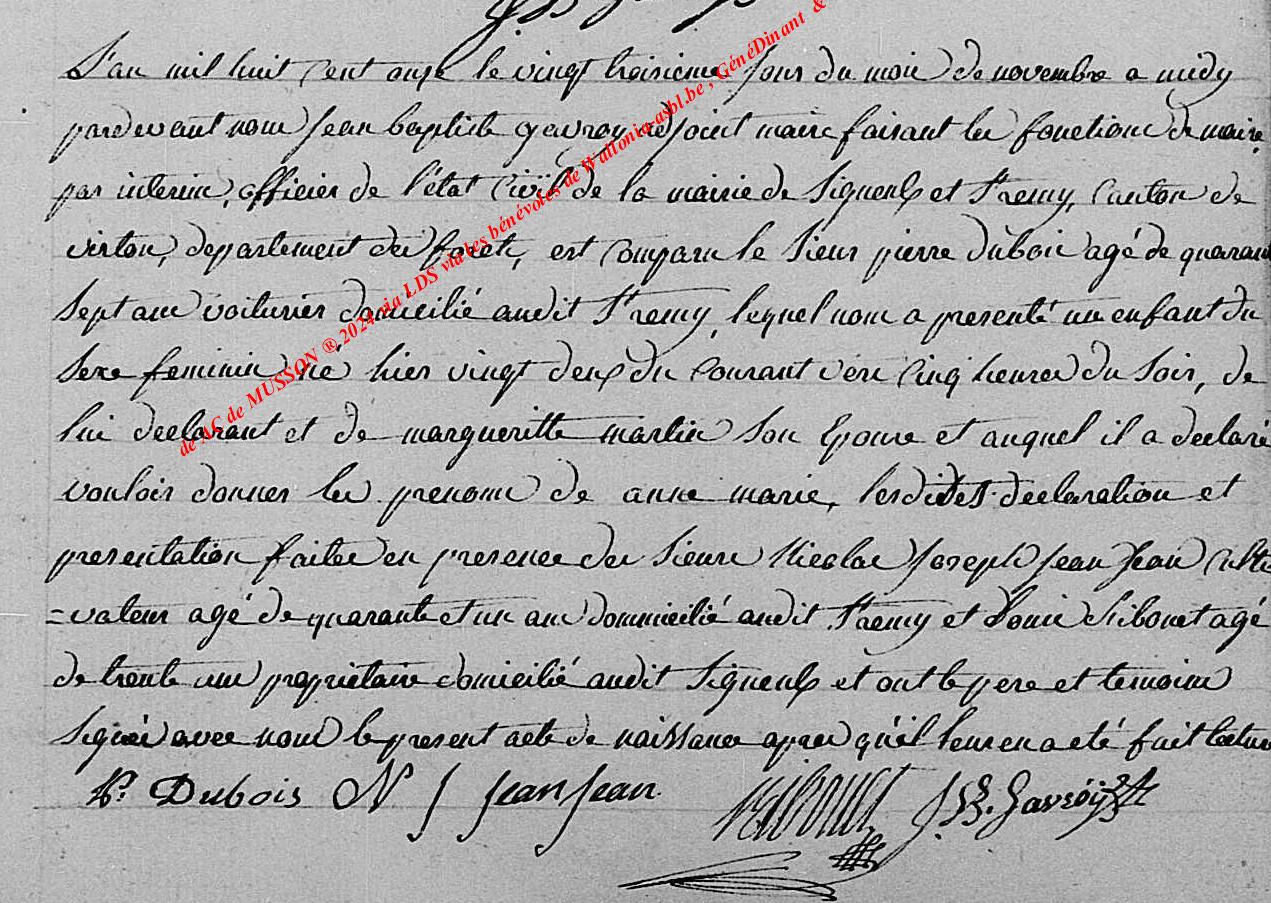 L'an mil huit Cent onze le vingt troisieme jour du mois de novembre a midy
pardevant nous Jean baptiste gavroy adjoint maire faisant les fonctions de maire
par interim, officier de l'état Civil de la mairie de Signeulx et St remy, Canton de
virton, departement des forets, est Comparu le Sieur pierre dubois agé de quarante
Sept ans voiturier domicilié audit St remy, lequel nous a presenté un enfant du
Sexe feminin né hier vingt deux du Courant vers Cinq heures du Soir, de
lui declarant et de margueritte martin Son Epouse et auquel il a declaré
vouloir donner les prenoms de anne marie, lesdites declaration et
presentation faites en presence des Sieurs Nicolas Joseph Jean Jean Culti
=vateur agé de quarante et un ans dommicilié audit St remy et Louis agé
de trente ans propriétaire domicilié audit Signeulx et ont le pere et temoins
Signés avec nous le present acte de naissance apres qu'il leur en a eté fait lecture
P. Dubois N J Jean Jean J B Gavroy
de AC de MUSSON ® 2024 via LDS via les bénévoles de Wallonia-asbl.be , GénéDinant &